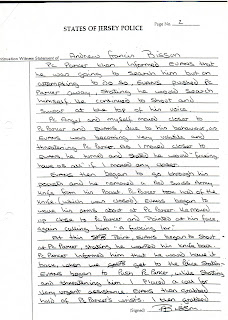 Page No. 2
STATES OF JERSEY POLICE
Witness Statement of Andrew Francis Bisson
Pc Parker then informed Evans that
he was going to search him but on
attempting to do so, Evans pushed Pc
Parker away, stating he would search
himself. He continued to shout and
swear at the top of his voice.
Pc Angel and myself moved closer to
Pc Parker and Evans, due to his behaviour, as
Evans was becoming very volatile and
threatening Pc Parker. As I moved closer to
Evans, he turned and stated he would fucking
have us all if I moved any closer.
Evans then began to go through his
pockets and he removed a red Swiss Army
knife from his pocket. Pc Parker took hold of the
knife (which was closed). Evans began to
wave his arms about at Pc Parker. He moved
up close to Pc Parker and pointed at his face,
again calling him "a fucking liar".
At this point, Evans began to shout
at Pc Parker, stating he wanted his knife back.
Pc Parker informed him that he would have it
back when we got to the Police Station.
Evans began to push Pc Parker, while shouting
and threatening him. I placed a call for
very urgent assistance. Evans then grabbed
hold of Pc Parker's wrists. I then grabbed
Signed Bisson